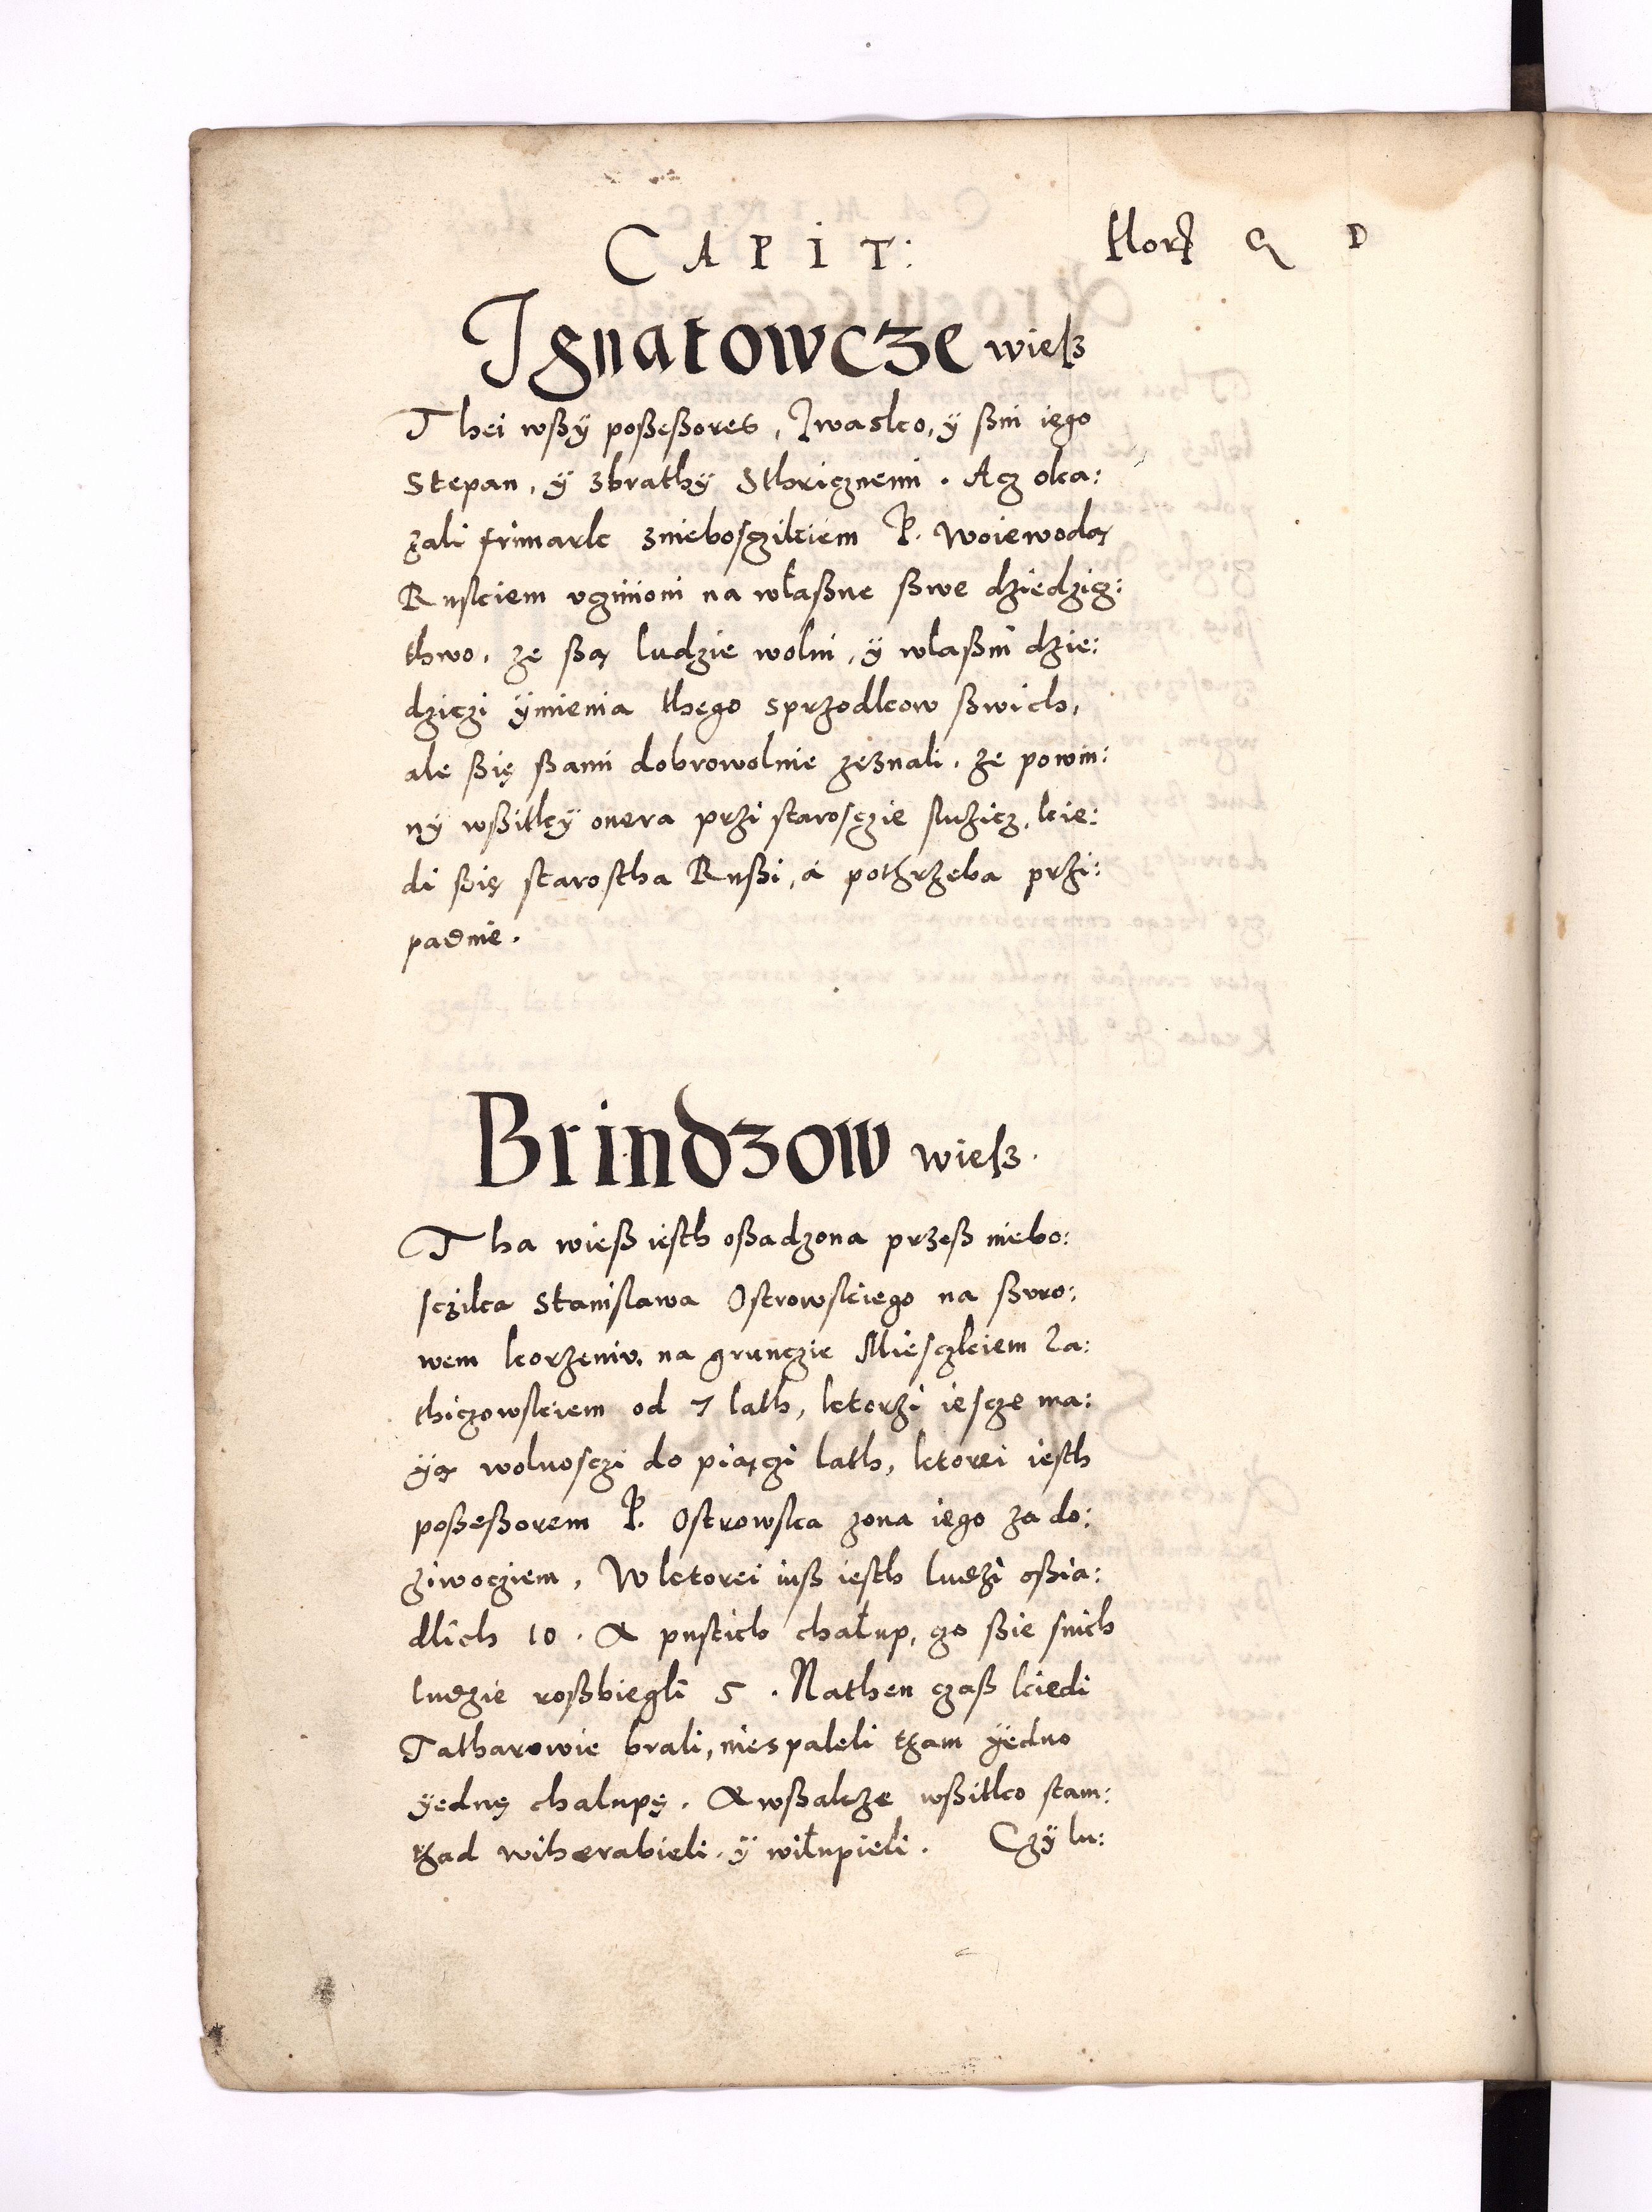 CAPIT: flor[um] G D
Ignatowcze wiesz
Thei wßÿ poßeßores, Iwasko, ÿ ßini iego
Stepan, ÿ zbrathÿ Sthricznemi. Acz oka:
zali frimark znieboszczikiem P. Woiewodą
Ruskiem vczinioni na właßne ßwe dziedzicz:
thwo, ze ßą ludzie wolni, ÿ wlaßni dzie:
dziczi ÿmienia thego sprzodkow ßwich,
ale ßię ßami dobrowolnie zeznali, ze powin:
nÿ wßitkÿ onera przi starosczie służicz, kie:
di ßię starostha Rußi, á pothrzeba przi:
padnie.
Brindzow wiesz.
Tha wieß iesth oßadzona przeß niebo:
sczika Stanislawa Ostrowskiego na ßuro:
wem korzeniu, na grunczie Miesczkiem La:
thiczowskiem od 7 lath, ktorzi iescze ma:
ÿą wolnosczi do piączi lath, ktorei iesth
poßeßorem P. Ostrowska zona iego za do:
ziwocziem, W ktorei iuß iesth ludzi oßia:
dlich 10. A pustich chałup, czo ßie snich
ludzie roßbiegli 5. Nathen czaß kiedi
Tatharowie brali, niespaleli tham ÿedno
ÿednę chalupę. A wßakze wßitko stam:
thad wiberabieli, ÿ wiłupieli. Czÿ lu: